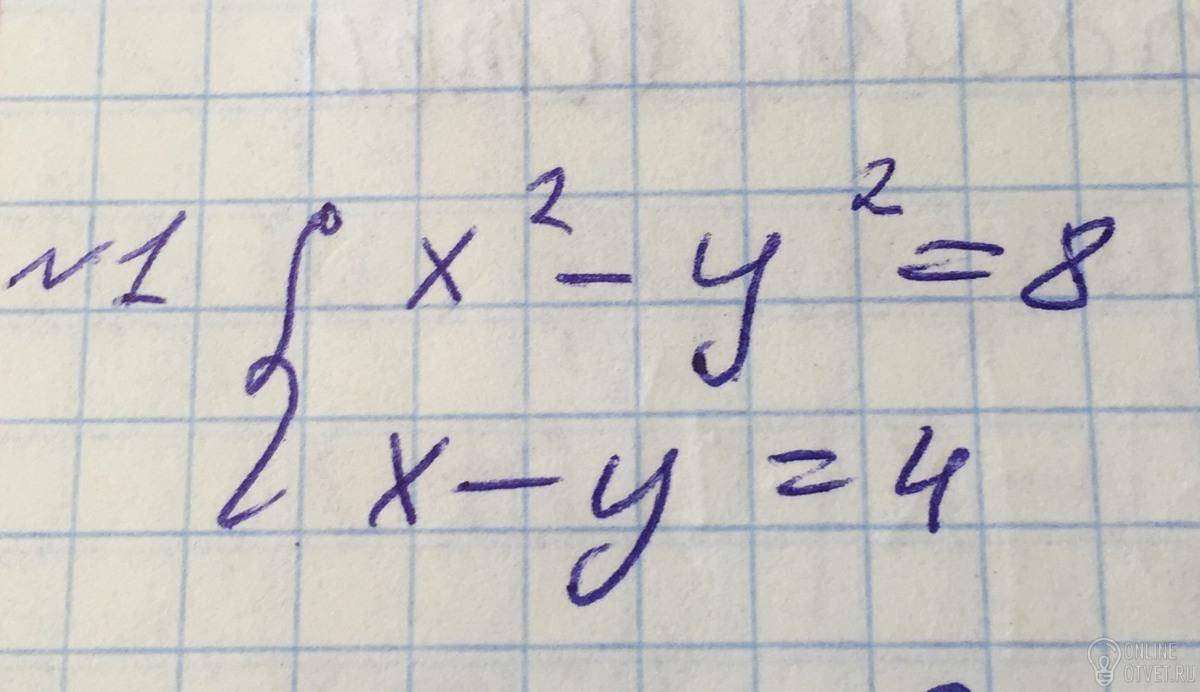 №1 { x² - y² = 8
x - y = 4
ONLINE
OTVET.RU